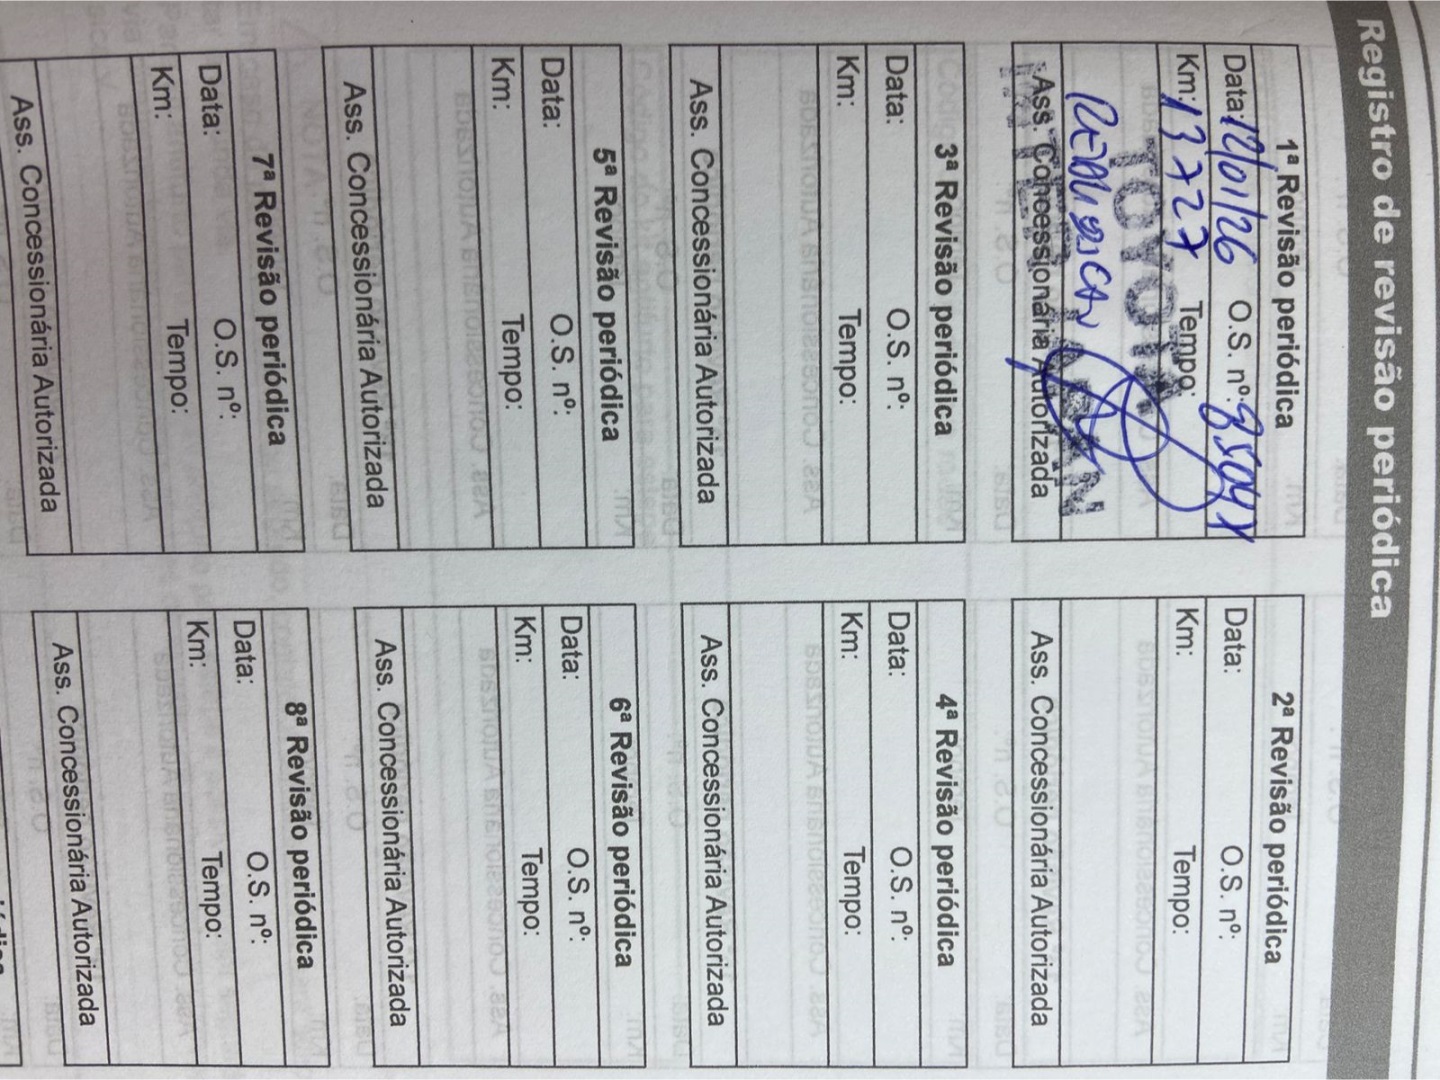 Registro de revisão periódica
1ª Revisão periódica
Data: 12/01/26 O.S. nº:
Km: 13727 Tempo:
TOYOTA
Ass. Concessionária Autorizada
2ª Revisão periódica
Data: O.S. nº:
Km: Tempo:
Ass. Concessionária Autorizada
3ª Revisão periódica
Data: O.S. nº:
Km: Tempo:
Ass. Concessionária Autorizada
4ª Revisão periódica
Data: O.S. nº:
Km: Tempo:
Ass. Concessionária Autorizada
5ª Revisão periódica
Data: O.S. nº:
Km: Tempo:
Ass. Concessionária Autorizada
6ª Revisão periódica
Data: O.S. nº:
Km: Tempo:
Ass. Concessionária Autorizada
7ª Revisão periódica
Data: O.S. nº:
Km: Tempo:
Ass. Concessionária Autorizada
8ª Revisão periódica
Data: O.S. nº:
Km: Tempo:
Ass. Concessionária Autorizada